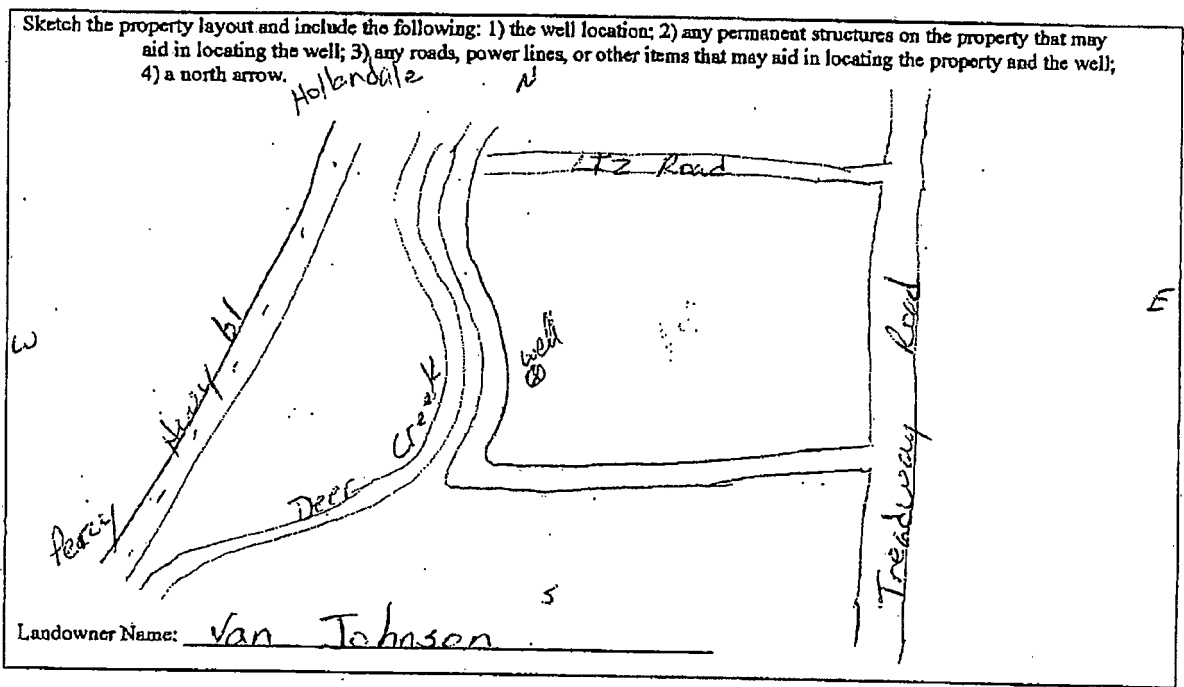 Sketch the property layout and include the following: 1) the well location; 2) any permanent structures on the property that may
aid in locating the well; 3) any roads, power lines, or other items that may aid in locating the property and the well;
4) a north arrow.
Hollandale
N
Road
Hwy 61
W
E
well
Deer Creek
Treadway Road
Percy
S
Landowner Name: Van Johnson